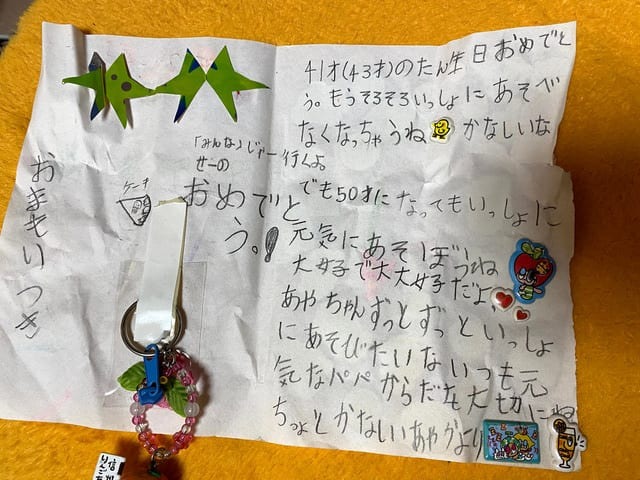 41才(43才)のたん生日おめでと
う。もうそろそろいっしょにあそべ
なくなっちゃうね かなしいな
でも50才になってもいっしょに
元気にあそぼうね
大好子で大大好子だよ
あやちゃんずっとずっといっしょ
にあそびたいないつも元
気なパパからだを大切にね
ちょとかないいあやかより
「みんな」じゃー行くよ
せーの
おめでと
う。!
ケーキ
おまもりつき
信州
りんご